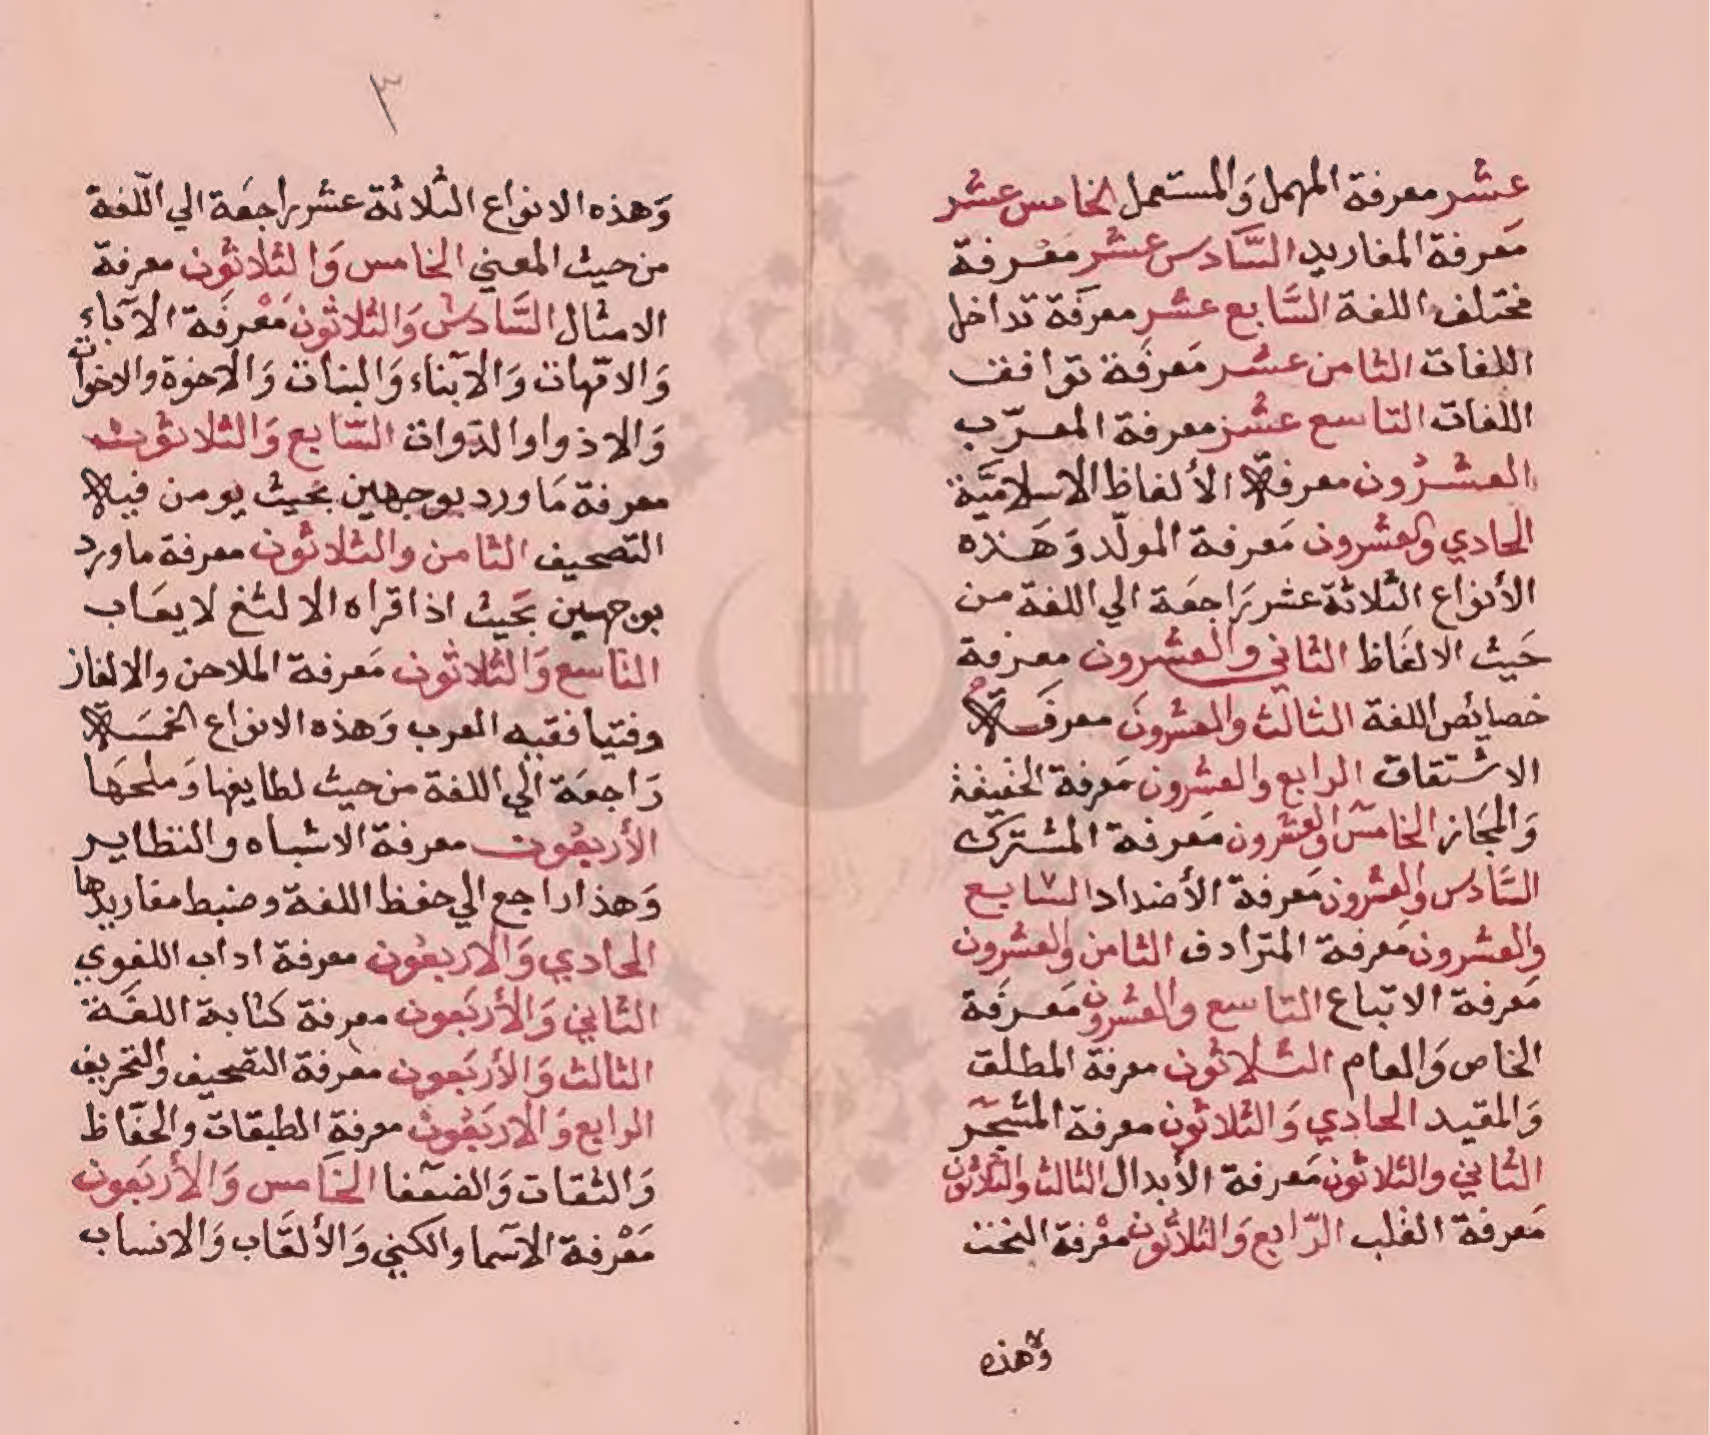 عشر معرفة المهمل وَالمستعمل الخامس عشر
مَعرفة المفاريد السَّادس عشر مَعْرفة
مختلف اللغة السَّابع عشر معرفَة تداخل
اللغات الثامن عشر مَعرفَة توافق
اللغات التاسع عشر معرفة المعرّب
العشرُون معرفة الألفاظ الاسلاميَّة
الحادي والعشرون مَعرفة المولّد وَهَذه
الأنواع الثلاثة عشر رَاجعَة الي اللغة من
حَيث الالفَاظ الثاني والعشرون معرفة
خصايص اللغة الثالث والعشرونَ معرفَة
الاشتقاق الرابع والعشرون مَعرفة الحقيقة
وَالمجَاز الخامسَ والعشرون مَعرفة المشترك
السَّادس والعشرون مَعرفة الأضداد السابع
والعشرون مَعرفة المترادف الثامن والعشرون
مَعرفة الاتباع التاسع والعشرون مَعرفَة
الخاص وَالعام الثلاثون معرفة المطلق
وَالمقيد الحادي وَالثلاثون معرفة المشجّر
الثاني والثلاثون مَعرفة الأبدال الثالث والثلاثون
مَعرفة القلب الرّابع وَالثلاثون معْرفة النحت
وهذه
٣
وَهذه الانواع الثلاثة عشر راجعَة الي اللّغة
من حيث المعني الخامس وَالثلاثون معرفة
الامثال السَّادس وَالثلاثون مَعْرفَة الآبَاءِ
وَالامّهات وَالأبناء وَالبنات وَالاخوَة والاخوات
وَالاذوا والذوات السَّابع وَالثلاثون
معرفة مَا ورد بوجهين بحَيث يومن فيه
التصحيف الثامن والثلاثون معرفة ما ورد
بوجهين بحَيث اذا قراه الالثغ لا يعَاب
التاسع وَالثلاثون مَعرفة الملاحن والالغاز
وفتيا فقيه العرب وَهذه الانواع الخمسَة
رَاجعَة الي اللغة من حيث لطايفها وَملحَها
الأربعُون معرفة الاشباه والنظاير
وَهذا راجع الي حفظ اللغة وضبط مفاريدها
الحادي وَالاربعُون معرفة اداب اللغوي
الثاني وَالأربَعون معرفة كتابة اللغَة
الثالث وَالأربَعون معرفة التصحيف والتحريف
الرابع وَالاربَعُون معرفة الطبقات والحفّاظ
وَالثقات وَالضعَفا الخَامس وَالأربَعون
مَعْرفة الاسَما والكني وَالألقَاب وَالانساب